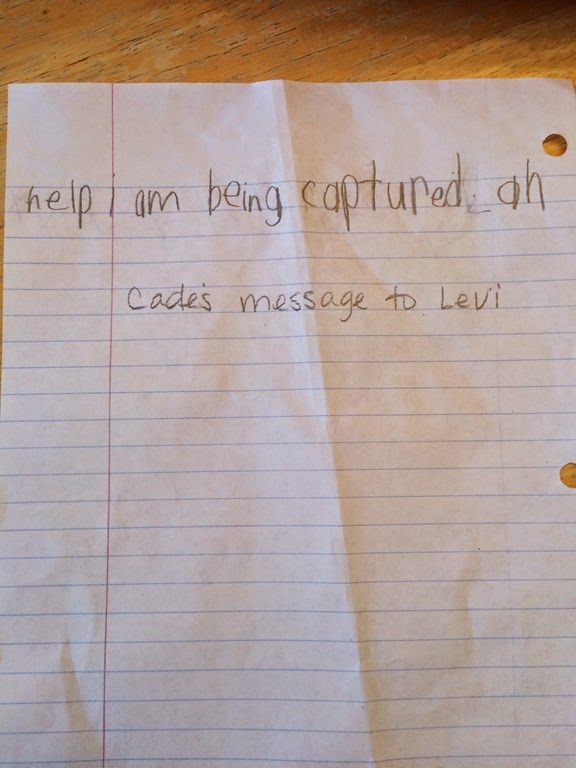 help I am being captured. ah
Cade's message to Levi